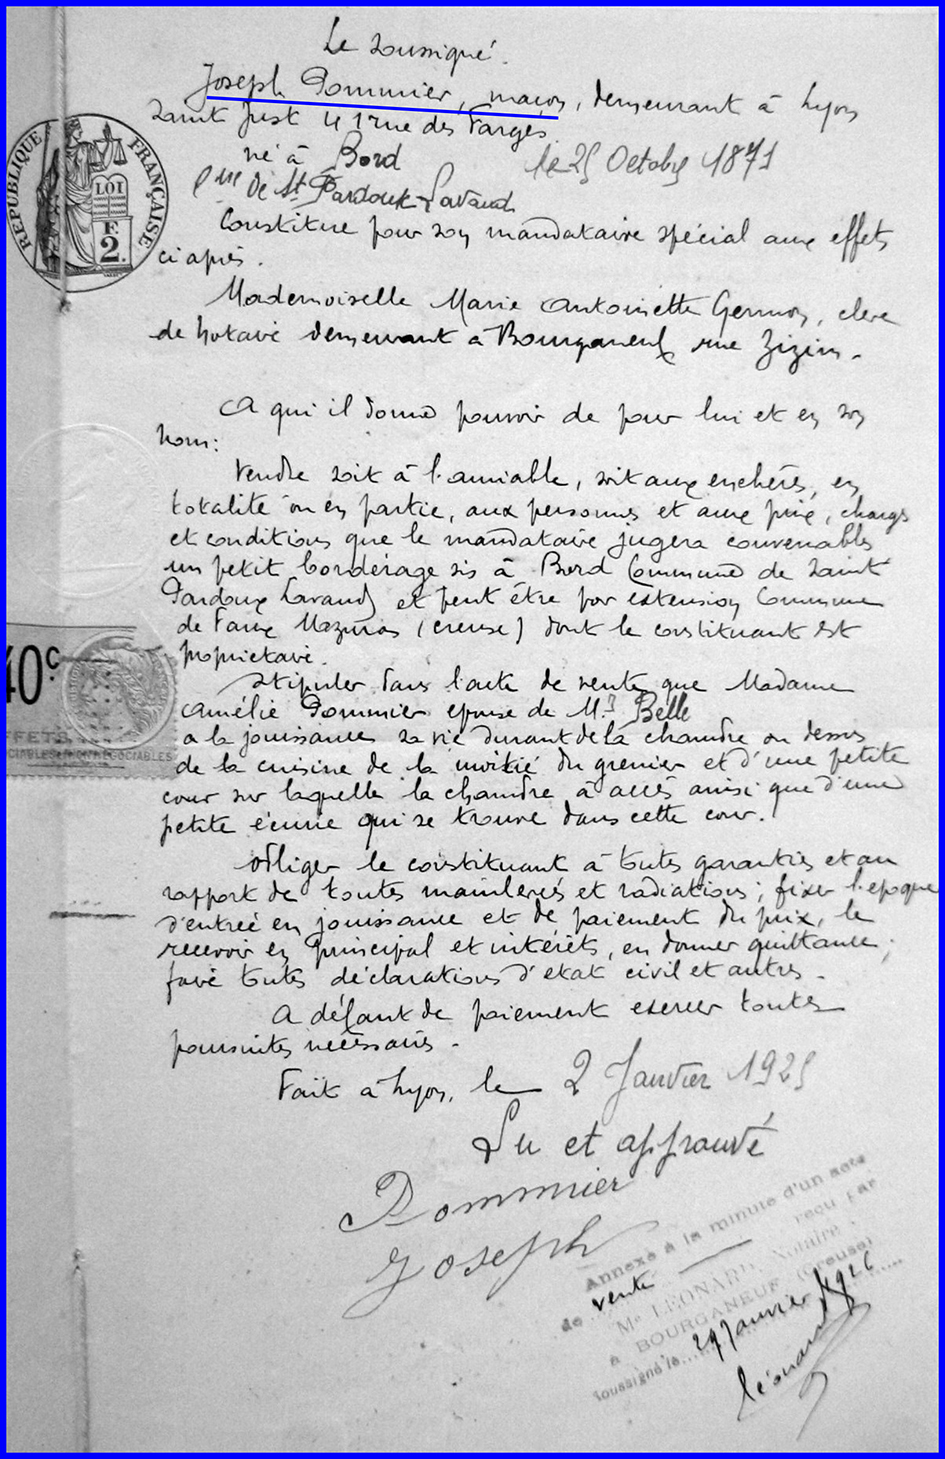 Le soussigné.
Joseph Pommier, maçon, demeurant à Lyon
Saint Just 41 rue des Farges
né à Bord le 25 Octobre 1871
Cne De St Pardoux-Lavaud
Constitue pour son mandataire spécial aux effets
ci après.
Mademoiselle Marie Antoinette, clerc
de notaire demeurant à Bourganeuf rue Zizim.
A qui il donne pouvoir de pour lui et en son
nom:
Vendre soit à l'amiable, soit aux enchères, en
totalité ou en partie, aux personnes et aux prix, charges
et conditions que le mandataire jugera convenables
un petit bordérage sis à Bord Commune de Saint
Pardoux Lavaud et peut être par extension Commune
de Faux Mazuras (Creuse) dont le constituant est
propriétaire.
Stipuler dans l'acte de vente que Madame
Amélie Pommier épouse de Mr Belle
a la jouissance sa vie durant de la chambre au dessus
de la cuisine de la moitié du grenier et d'une petite
cour sur laquelle la chambre a accès ainsi que d'une
petite écurie qui se trouve dans cette cour.
Obliger le constituant à toutes garanties et au
rapport de toutes mainlevées et radiations; fixer l'epoque
d'entrée en jouissance et de paiement du prix, le
recevoir en principal et intérêts, en donner quittance;
faire toutes déclarations d'état civil et autres.
A défaut de paiement exercer toutes
poursuites nécessaires.
Fait à Lyon, le 2 Janvier 1925
Lu et approuvé
Pommier
Joseph
Annexé à la minute d'un acte
de vente reçu par
Me LEONARD, Notaire
à BOURGANEUF (Creuse)
soussigné le 29 Janvier 1926
Léonard
RÉPUBLIQUE FRANÇAISE
LOI
F.
2.
40c
EFFETS
NÉGOCIABLES OU NON NÉGOCIABLES